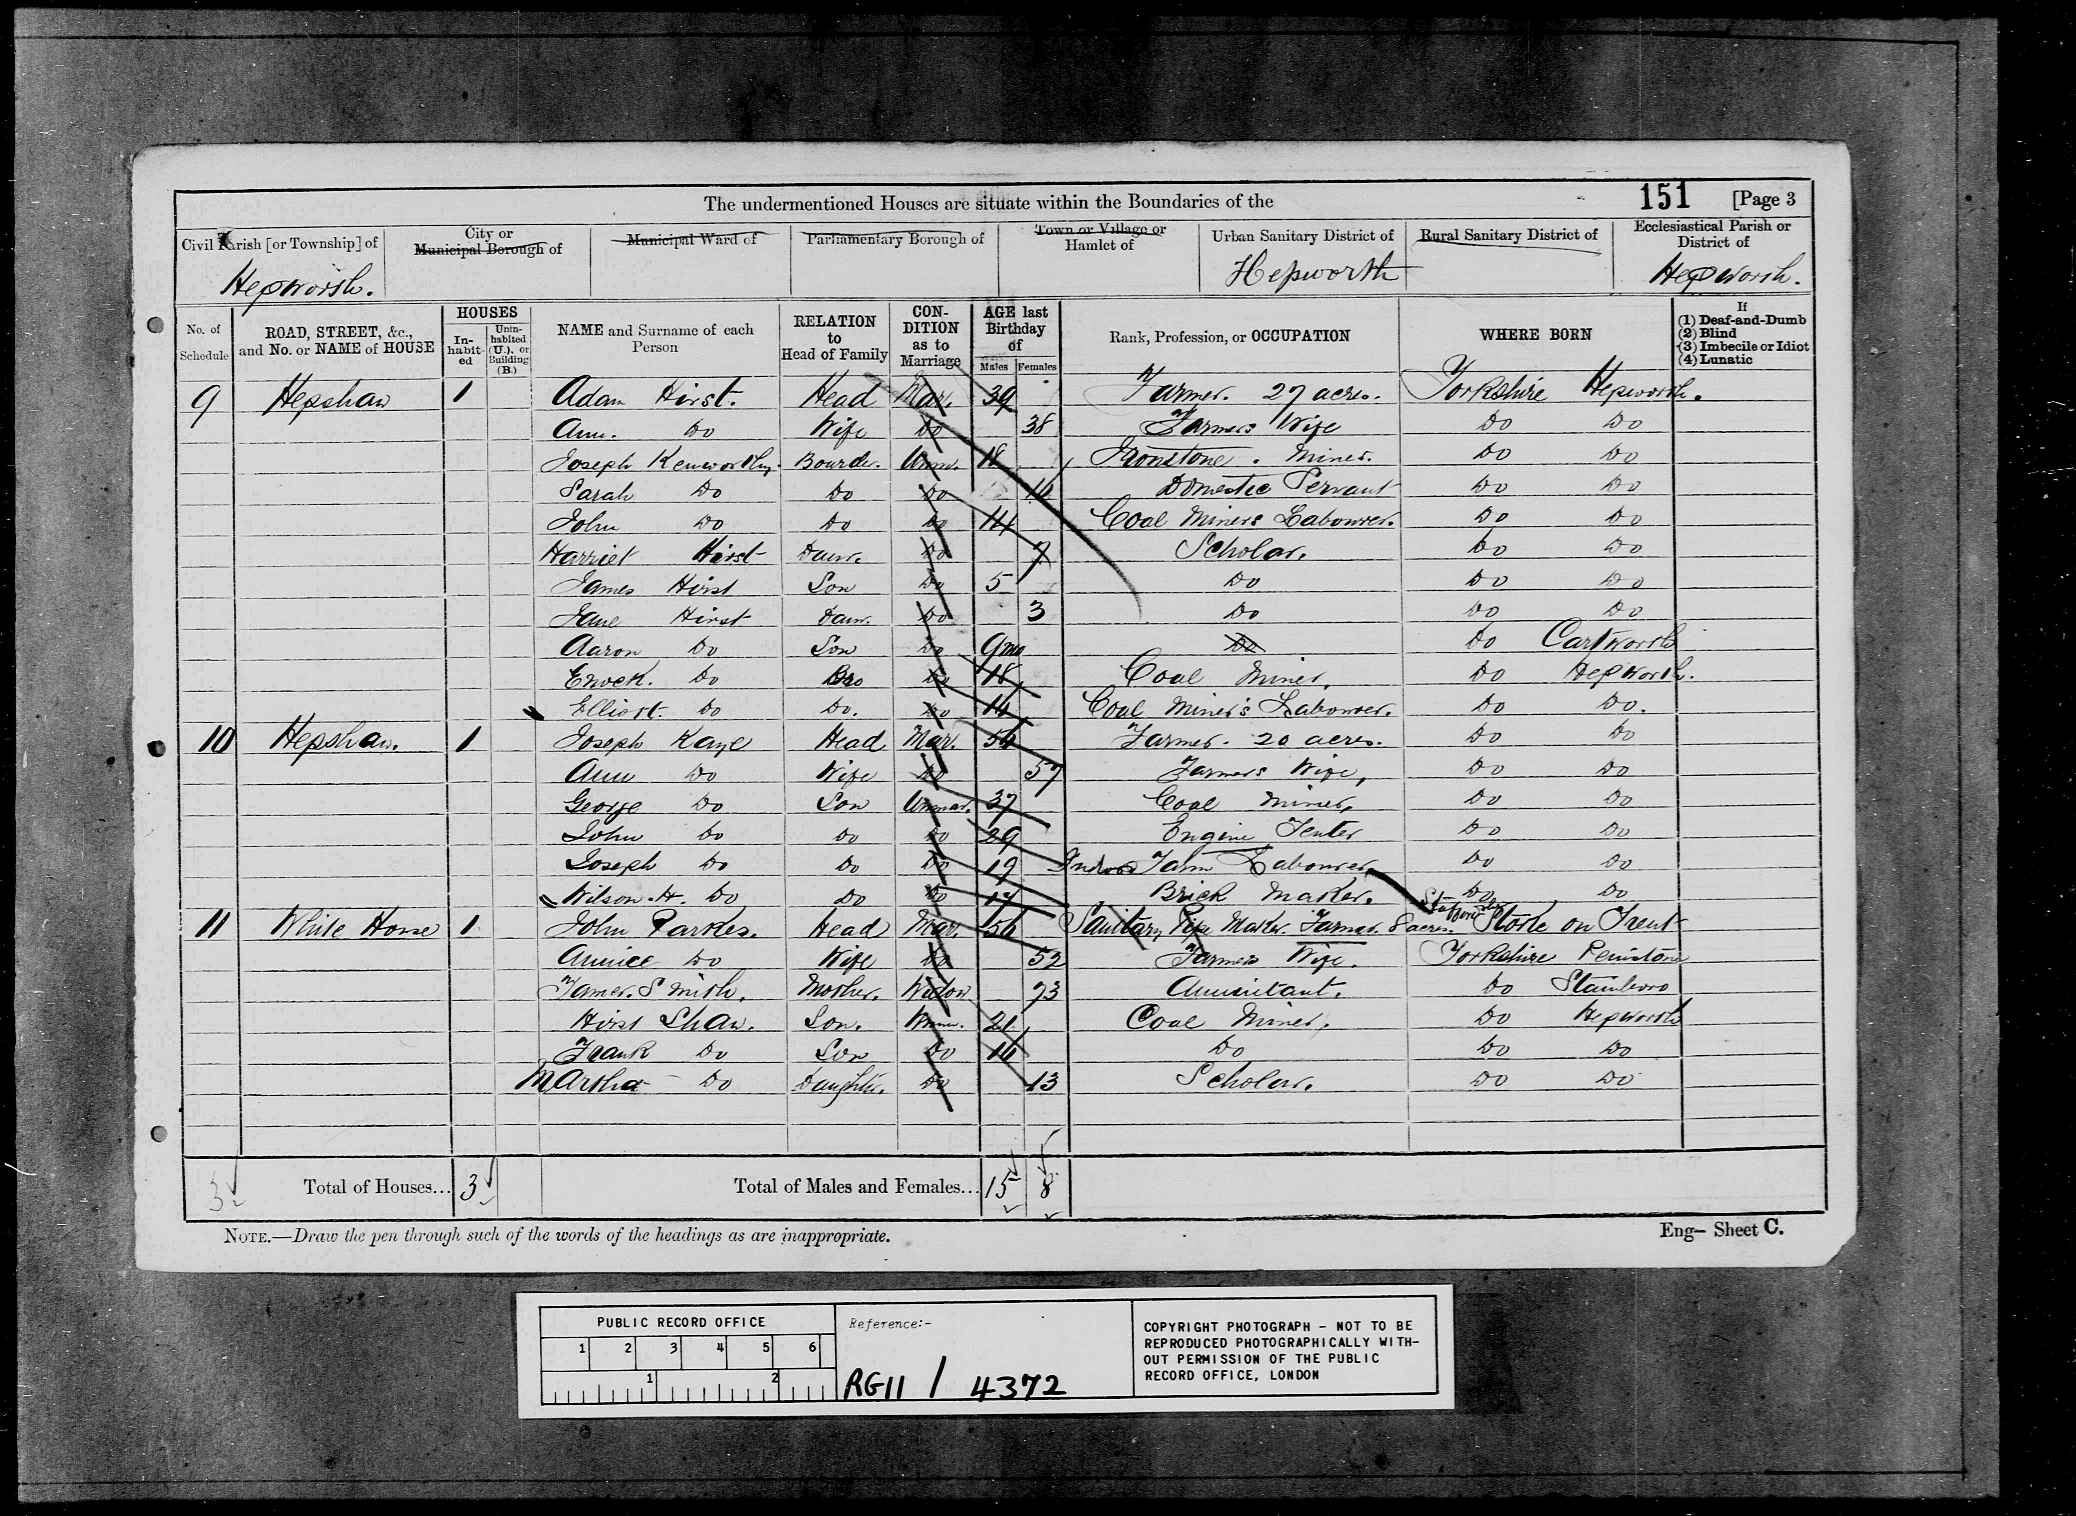 The undermentioned Houses are situate within the Boundaries of the 151 [Page 3
Civil Parish [or Township] of City or Municipal Borough of Municipal Ward of Parliamentary Borough of Town or Village or Hamlet of Urban Sanitary District of Rural Sanitary District of Ecclesiastical Parish or District of
Hepworth. Hepworth Hepworth.
No. of Schedule ROAD, STREET, &c., and No. or NAME of HOUSE HOUSES Inhabited Uninhabited (U.), or Building (B.) NAME and Surname of each Person RELATION to Head of Family CONDITION as to Marriage AGE last Birthday of Males Females Rank, Profession, or OCCUPATION WHERE BORN If (1) Deaf-and-Dumb (2) Blind (3) Imbecile or Idiot (4) Lunatic
9 Hepshaw 1 Adam Hirst. Head Mar. 39 Farmer. 27 acres. Yorkshire Hepworth.
Ann. Do Wife Do 38 Farmers Wife Do Do
Joseph Kenworthy. Boarder. Unm. 18 Ironstone . Miner. Do Do
Sarah Do Do Do 16 Domestic Servant Do Do
John Do Do Do 14 Coal Miners Labourer. Do Do
Harriet Hirst Daur. Do 7 Scholar. Do Do
James Hirst Son Do 5 Do Do Do
Jane Hirst Daur. Do 3 Do Do Do
Aaron Do Son Do 9mo Do Do Cartworth
Enock. Do Bro Do 18 Coal Miner. Do Hepworth.
Elliott. Do Do. Do 14 Coal Miner's Labourer. Do Do.
10 Hepshaw. 1 Joseph Kaye Head Mar. 56 Farmer. 20 acres. Do Do
Ann Do Wife Do 57 Farmers Wife, Do Do
George Do Son Unmar. 37 Coal Miner, Do Do
John Do Do Do 29 Engine Tenter Do Do
Joseph Do Do Do 19 Indoor Farm Labourer Do Do
Wilson. H. Do Do Do 17 Brick Maker. Do Do
11 White House 1 John Parkes. Head Mar. 56 Sanitary Pipe Maker Farmer 8 acres. Stoke on Trent
Do Wife Do 52 Farmers Wife. Yorkshire Penistone
Smith. Mother. Widow 73 Annuitant. Do Stainboro
Hirst Shaw. Son. Unm. 21 Coal Miner. Do Hepworth
Frank Do Son Do 16 Do Do Do
Martha Do Daughter. Do 13 Scholar. Do Do
3 Total of Houses... 3 Total of Males and Females... 15 8
NOTE.—Draw the pen through such of the words of the headings as are inappropriate. Eng— Sheet C.
PUBLIC RECORD OFFICE
1 2 3 4 5 6
1 2
Reference:-
RG11 / 4372
COPYRIGHT PHOTOGRAPH - NOT TO BE
REPRODUCED PHOTOGRAPHICALLY WITH-
OUT PERMISSION OF THE PUBLIC
RECORD OFFICE, LONDON